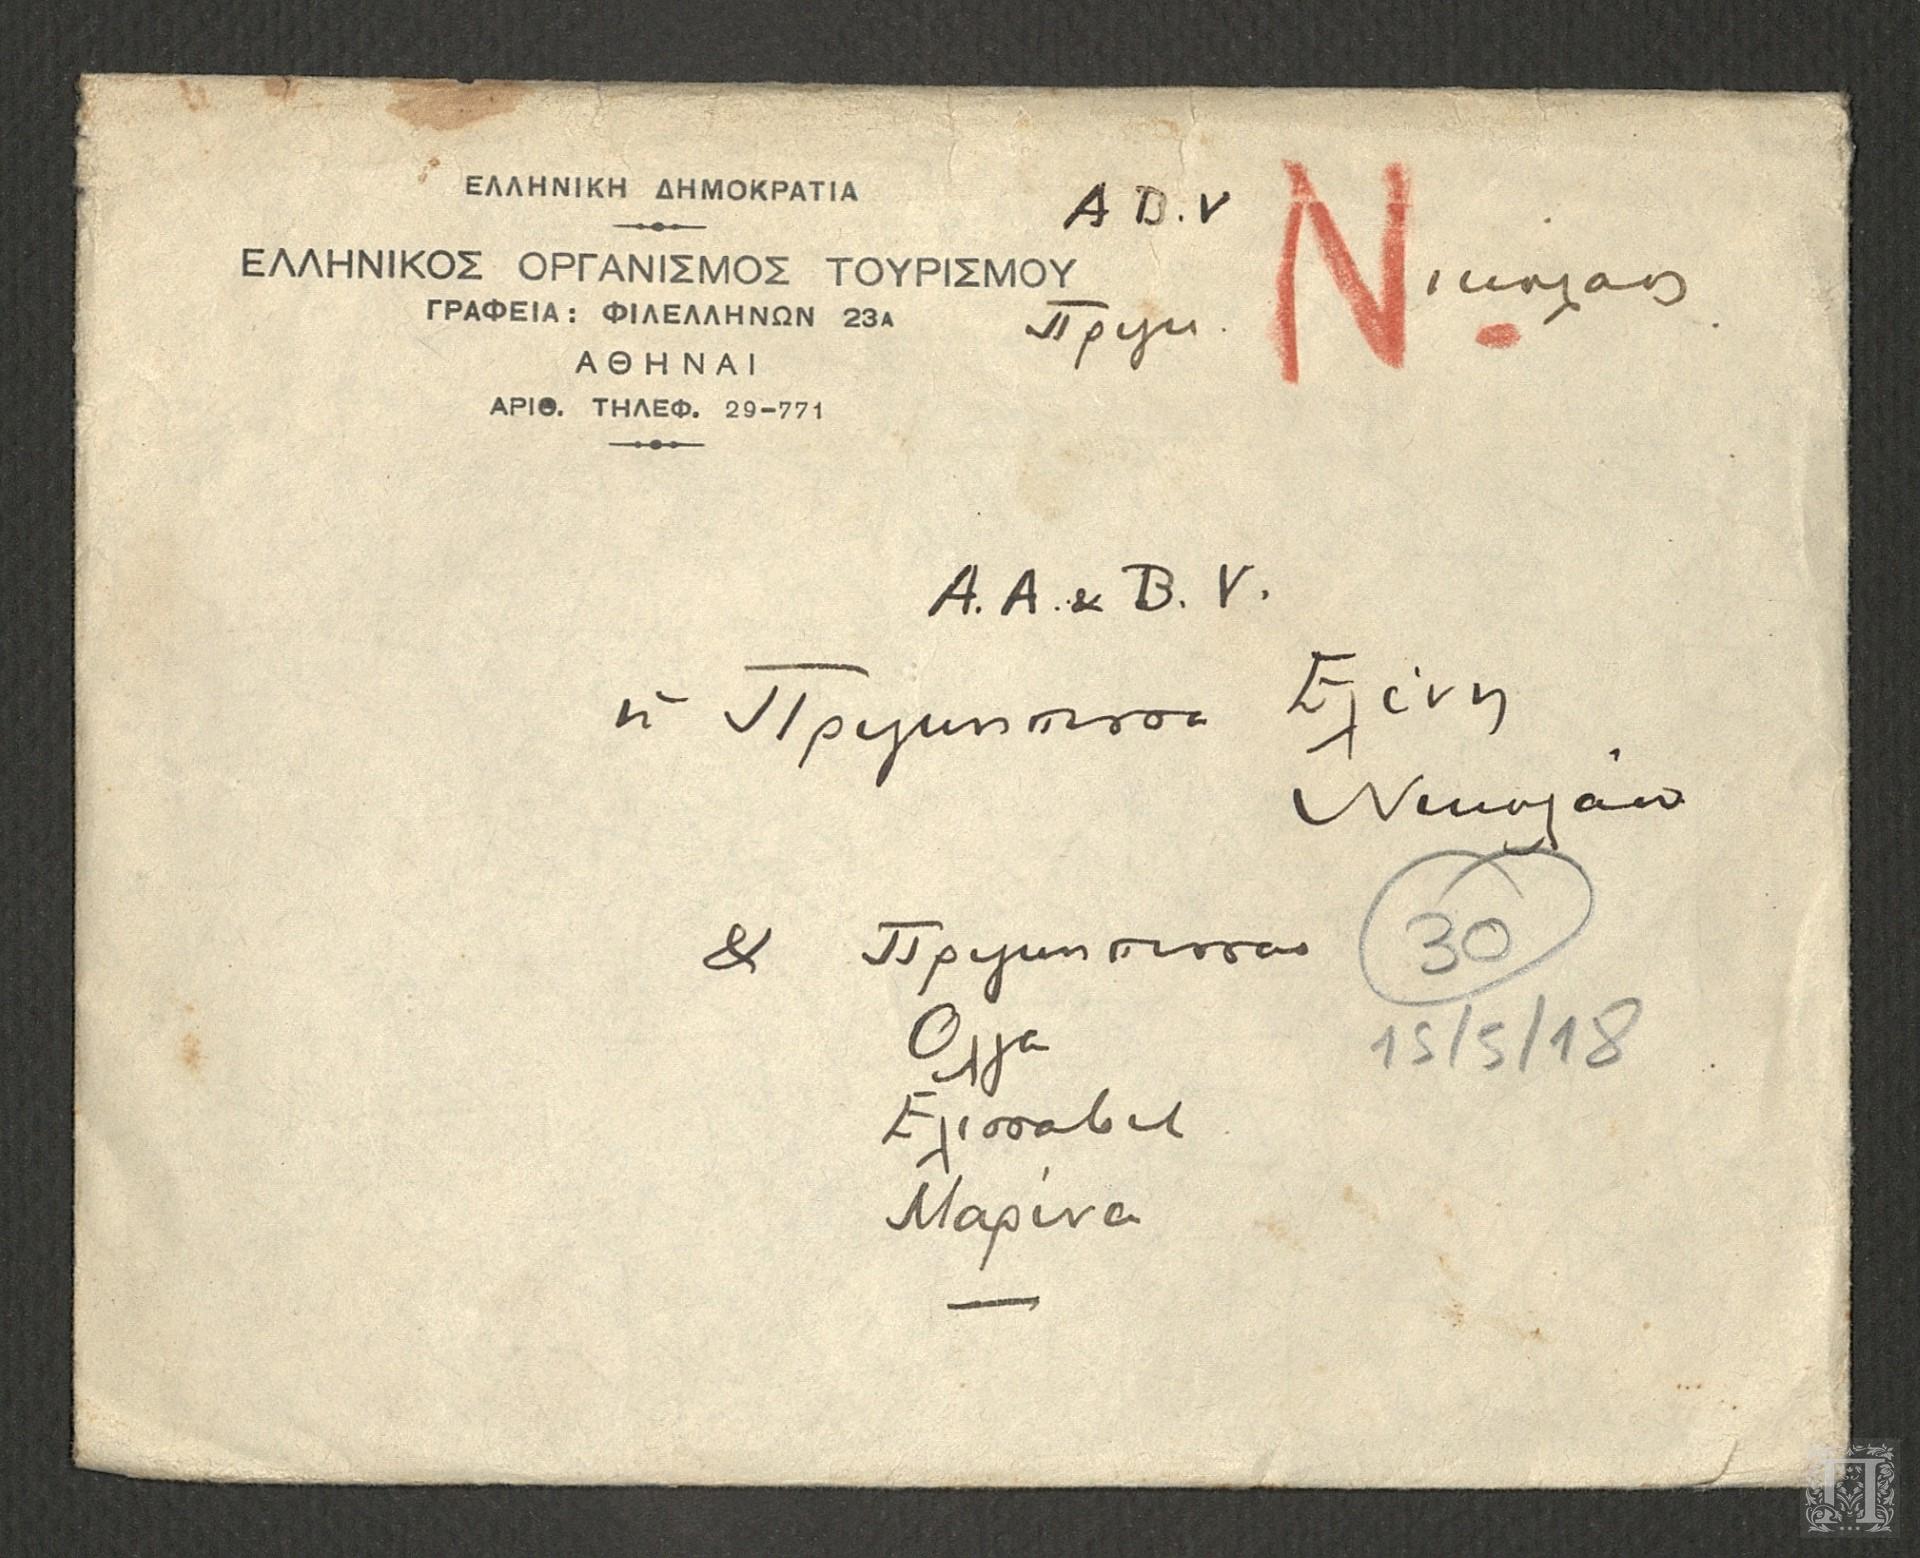 ΕΛΛΗΝΙΚΗ ΔΗΜΟΚΡΑΤΙΑ
ΕΛΛΗΝΙΚΟΣ ΟΡΓΑΝΙΣΜΟΣ ΤΟΥΡΙΣΜΟΥ
ΓΡΑΦΕΙΑ: ΦΙΛΕΛΛΗΝΩΝ 23Α
ΑΘΗΝΑΙ
ΑΡΙΘ. ΤΗΛΕΦ. 29-771
Α Β.Υ
Πριγκ. Νικολαος
Α.Α. & Β.Υ.
ἡ Πριγκηπισσα Ελένη
Νικολάου
& Πριγκηπισσαι
Ολγα
Ελισσαβετ
Μαρίνα
30
15/5/18